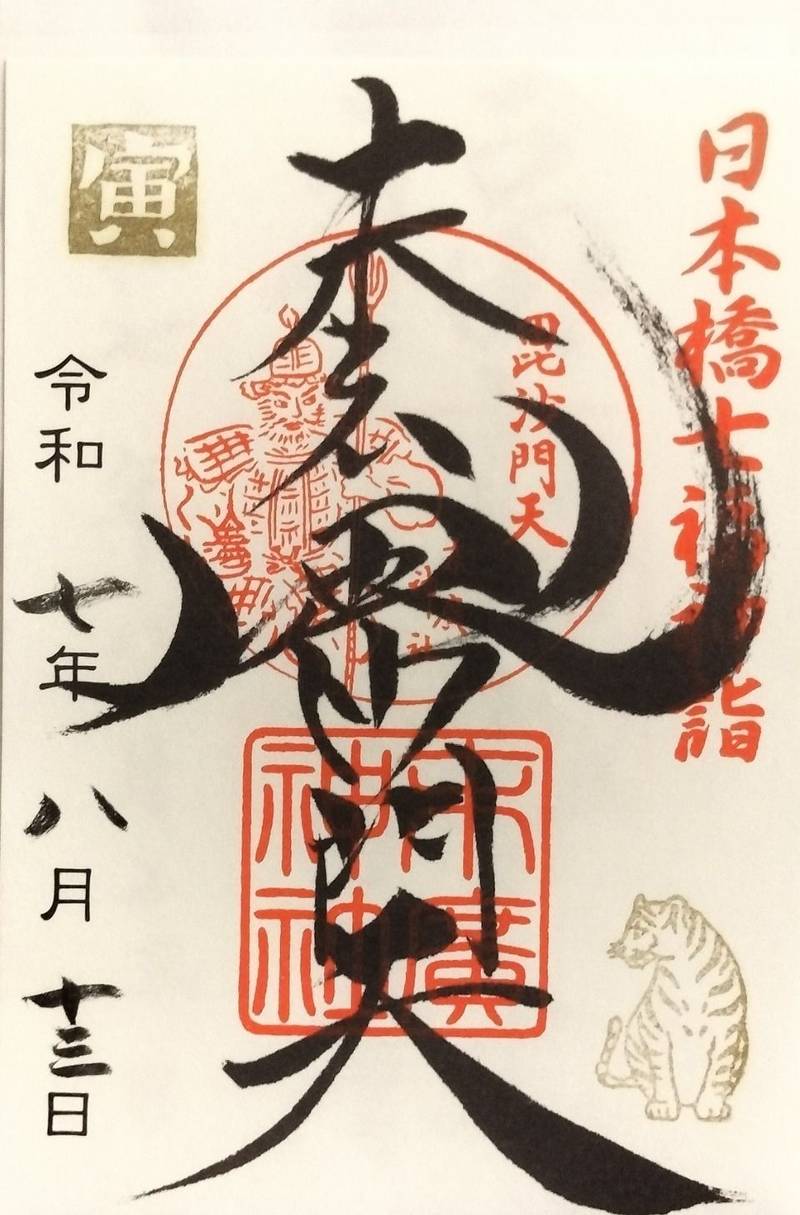 日本橋七福神詣
毘沙門天
毘沙門天
末廣神社
寅
令和七年八月十三日